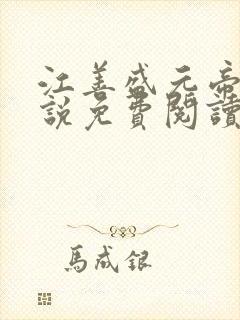 江善盛元帝
說免費閱讀
馬成銀